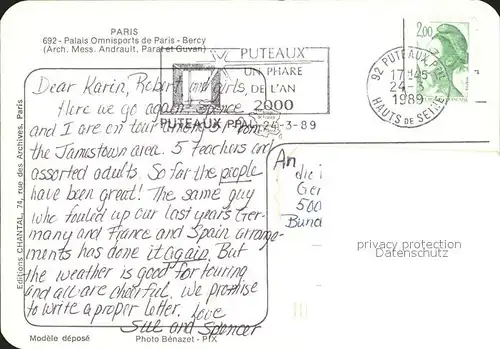 PARIS
692 - Palais Omnisports de Paris - Bercy
(Arch. Mess. Andrault, Parat et Guvan)
PUTEAUX
UN PHARE
DE L'AN
2000
PUTEAUX PPAL 24-3-89
2,00
92 PUTEAUX PPAL
17H45
24-3
1989
HAUTS DE SEINE
Dear Karin, Robert and girls,
Here we go again - Spence
and I are on tour among 51 from
the Jamestown area. 5 teachers and
assorted adults. So far the people
have been great! The same guy
who fouled up our last years Ger-
many and France and Spain arrange-
ments has done it again. But
the weather is good for touring
and all are cheerful. We promise
to write a proper letter. Love
Sue and Spencer
An
die
Ger
500
Buna
privacy protection
Datenschutz
Editions CHANTAL, 74, rue des Archives, Paris
Modèle déposé
Photo Bénazet - PIX